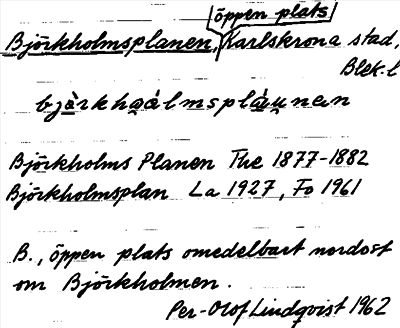 öppen plats
Björkholmsplanen, Karlskrona stad,
Blek. l
Björkholms Planen The 1877-1882
Björkholmsplan La 1927, Fo 1961
B., öppen plats omedelbart nordost
om Björkholmen.
Per-Olof Lindqvist 1962